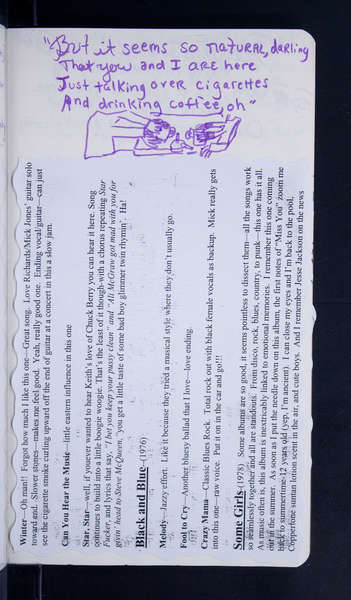 "But it seems so natural, darling
That you and I are here
Just talking over cigarettes
And drinking coffee, oh"
Winter—Oh man!! Forgot how much I like this one—Great song. Love Richards/Mick Jones' guitar solo
toward end. Slower stones—makes me feel good. Yeah, really good one. Ending vocal/guitar—can just
see the cigarette smoke curling upward off the end of guitar at a concert in this a slow jam.
Can You Hear the Music—little eastern influence in this one
Star, Star—well, if you ever wanted to hear Keith's love of Chuck Berry you can hear it here. Song
continues to build into a little boogey woogie. That's the least of it though-with a chorus repeating Star
Fucker, and lyrics that say, "I bet you keep your pussy clean" and "Ali McGraw got mad with you for
givin' head to Steve McQueen," you get a little taste of some bad boy glimmer twin rhymin'. Ha!
Black and Blue—(1976)
Melody—Jazzy effort. Like it because they tried a musical style where they don't usually go.
Fool to Cry—Another bluesy ballad that I love—love ending.
Crazy Mama—Classic Blues Rock. Total rock out with black female vocals as backup. Mick really gets
into this one—raw voice. Put it on in the car and go!!!
Some Girls—(1978) Some albums are so good, it seems pointless to dissect them—all the songs work
so seamlessly together and all are standouts. From disco, rock, blues, country, to punk—this one has it all.
As music often is, this album is inextricably linked to emotional memories. I remember this one coming
out in the summer. As soon as I put the needle down on this album, the first notes of "Miss You" zoom me
back to summertime-12 years old (yep, I'm ancient). I can close my eyes and I'm back to the pool,
Coppertone suntan lotion scent in the air, and cute boys. And I remember Jesse Jackson on the news